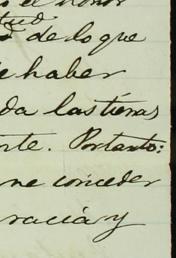 el honor
tud
de lo que
haber
da las tierras
nte. Portanto:
me conceder
racia y